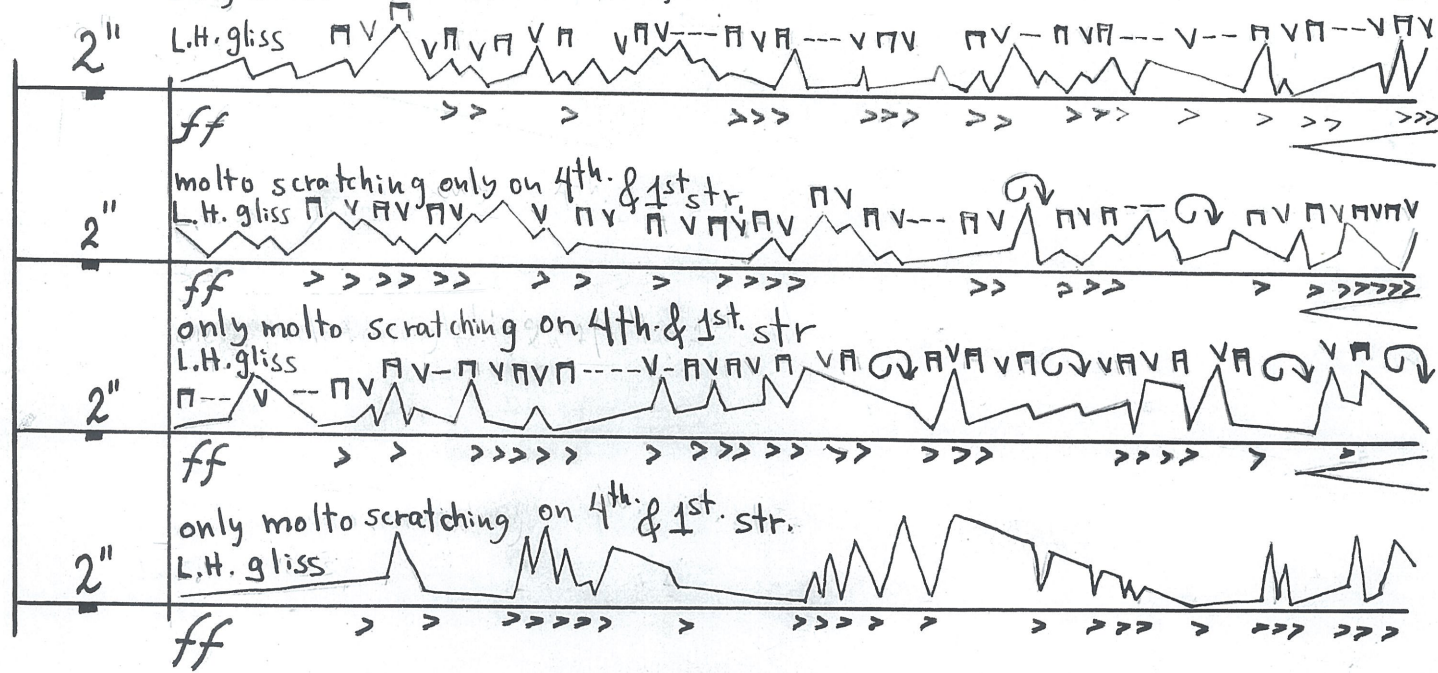 2" L.H. gliss
ff
molto scratching only on 4th. & 1st str.
2" L.H. gliss
ff
only molto scratching on 4th. & 1st. str
L.H. gliss
2"
ff
only molto scratching on 4th. & 1st. str.
2" L.H. gliss
ff